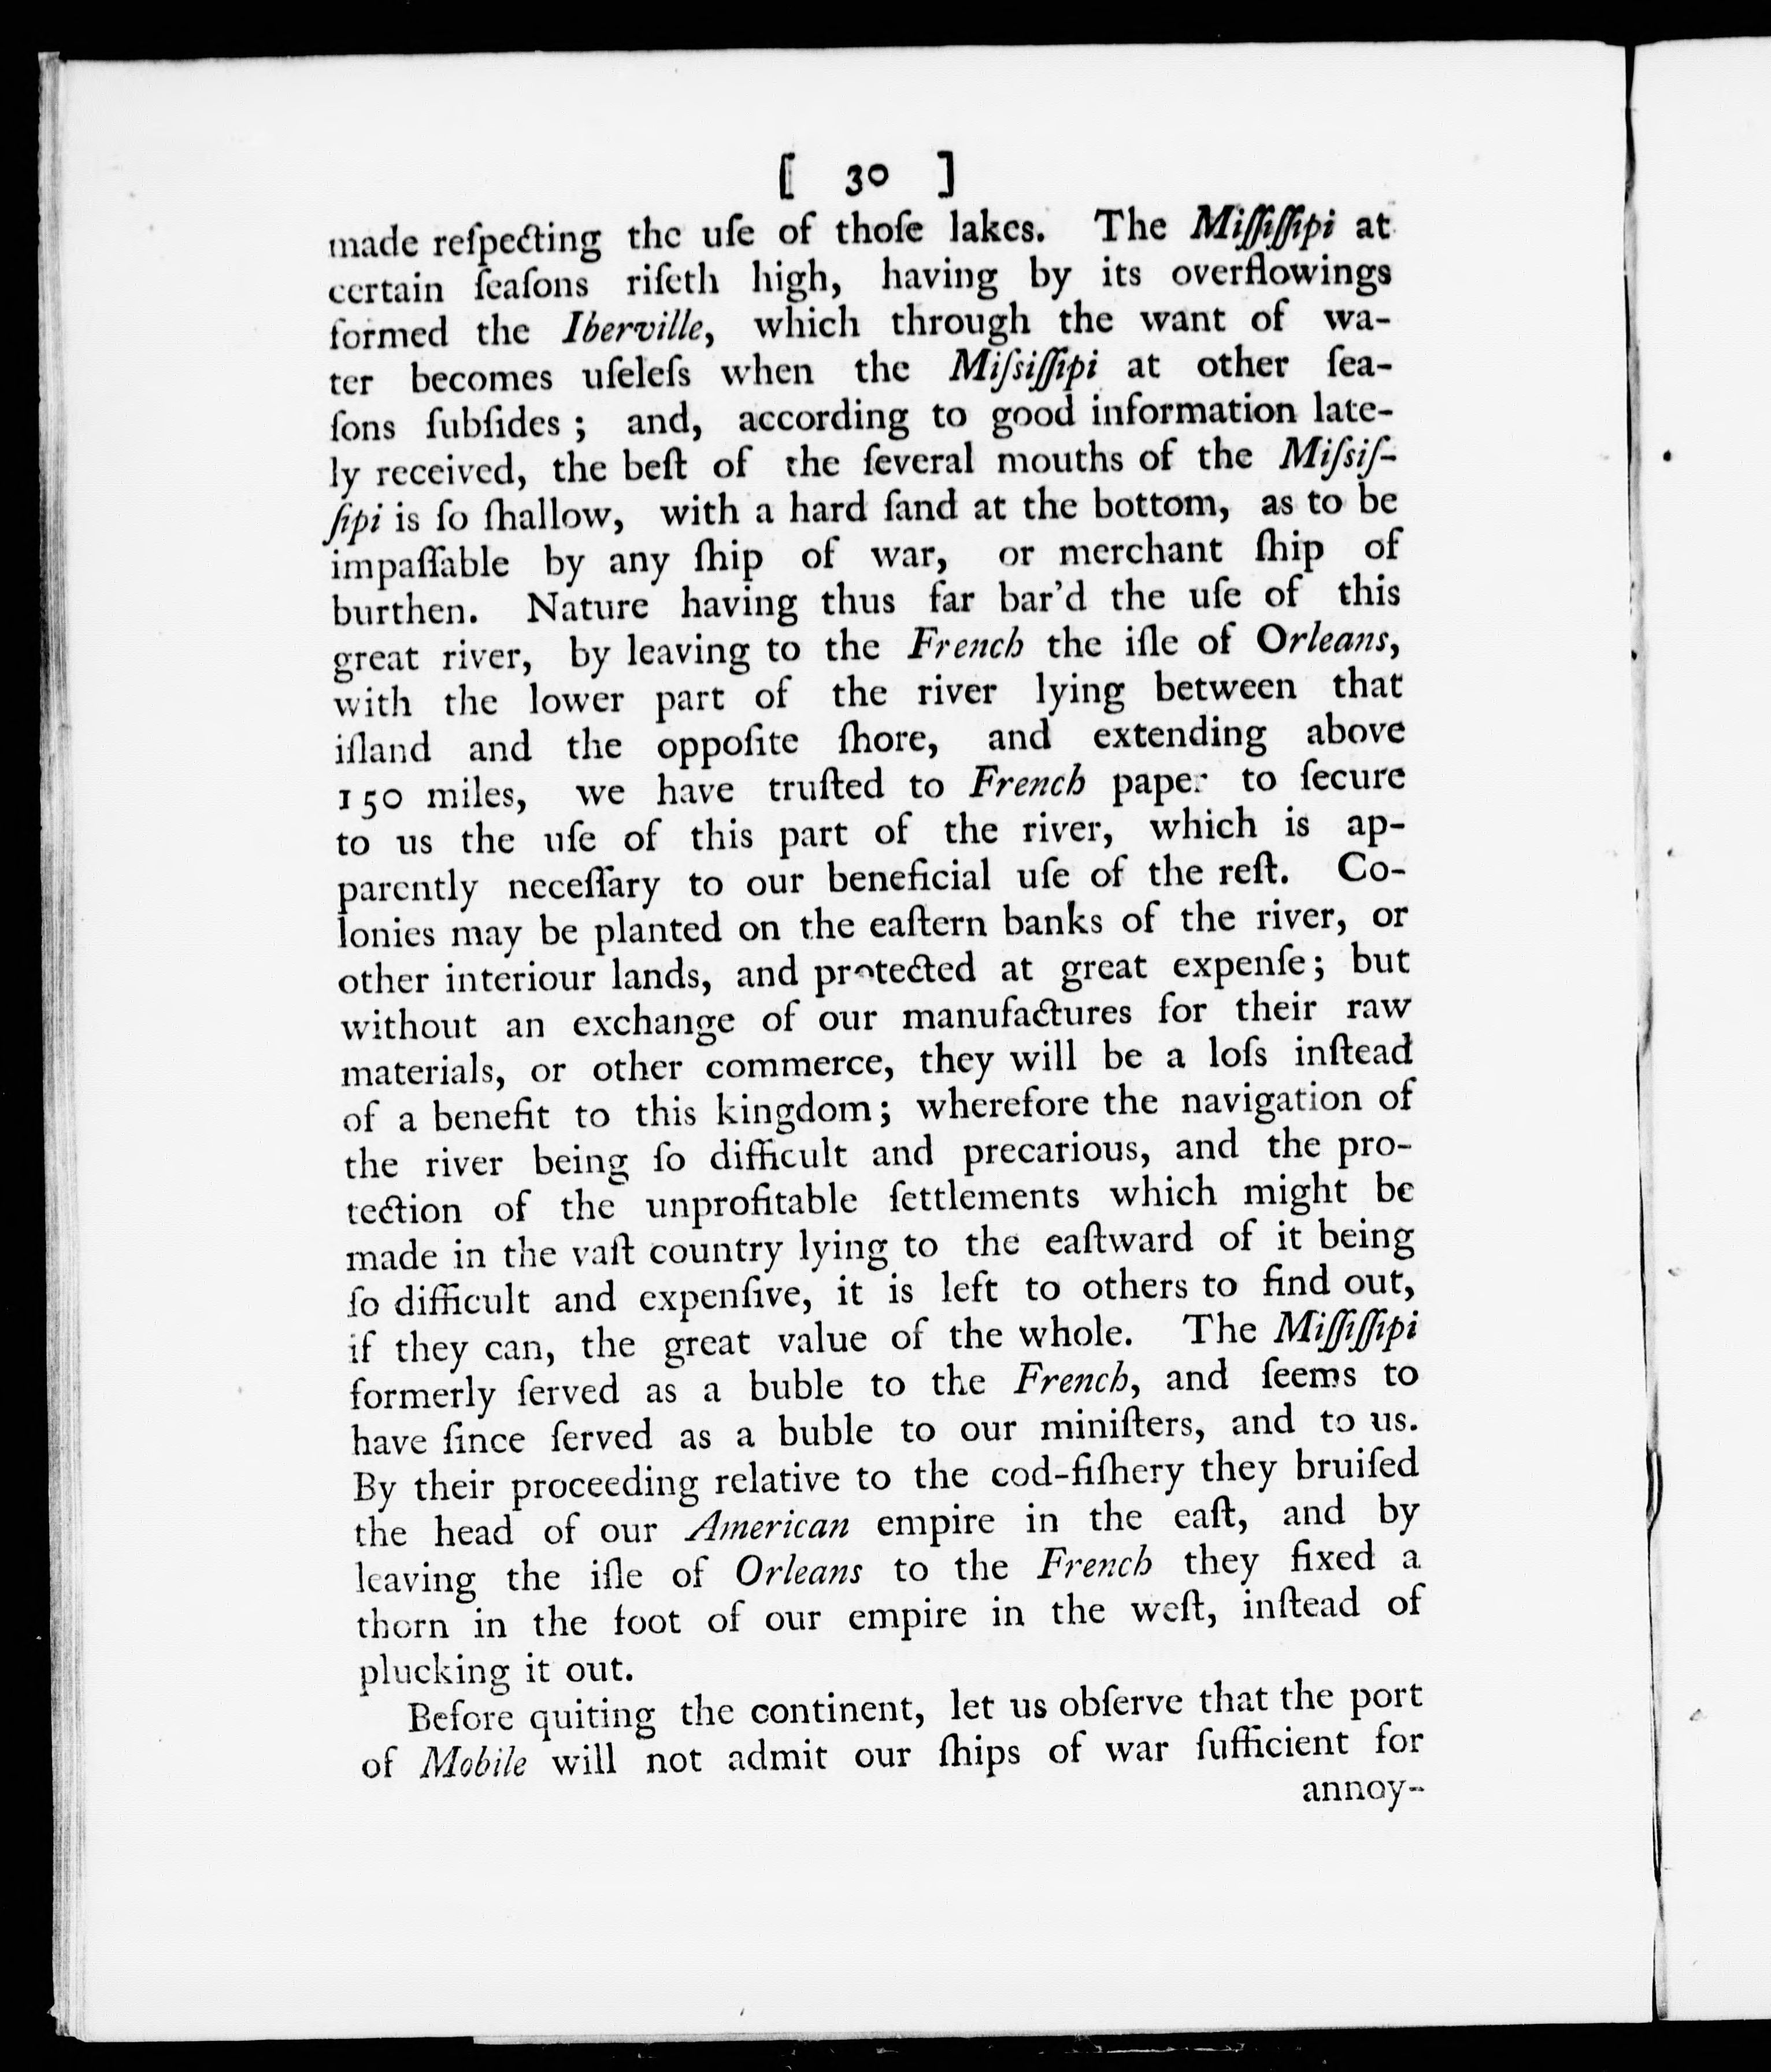 [ 30 ]
made reſpecting the uſe of thoſe lakes. The Miſſiſſipi at
certain ſeaſons riſeth high, having by its overflowings
formed the Iberville, which through the want of wa-
ter becomes uſeleſs when the Miſsiſſipi at other ſea-
ſons ſubſides ; and, according to good information late-
ly received, the beſt of the ſeveral mouths of the Miſsiſ-
ſipi is ſo ſhallow, with a hard ſand at the bottom, as to be
impaſſable by any ſhip of war, or merchant ſhip of
burthen. Nature having thus far bar'd the uſe of this
great river, by leaving to the French the iſle of Orleans,
with the lower part of the river lying between that
iſland and the oppoſite ſhore, and extending above
150 miles, we have truſted to French paper to ſecure
to us the uſe of this part of the river, which is ap-
parently neceſſary to our beneficial uſe of the reſt. Co-
lonies may be planted on the eaſtern banks of the river, or
other interiour lands, and protected at great expenſe; but
without an exchange of our manufactures for their raw
materials, or other commerce, they will be a loſs inſtead
of a benefit to this kingdom; wherefore the navigation of
the river being ſo difficult and precarious, and the pro-
tection of the unprofitable ſettlements which might be
made in the vaſt country lying to the eaſtward of it being
ſo difficult and expenſive, it is left to others to find out,
if they can, the great value of the whole. The Miſſiſſipi
formerly ſerved as a buble to the French, and ſeems to
have ſince ſerved as a buble to our miniſters, and to us.
By their proceeding relative to the cod-fiſhery they bruiſed
the head of our American empire in the eaſt, and by
leaving the iſle of Orleans to the French they fixed a
thorn in the foot of our empire in the weſt, inſtead of
plucking it out.
Before quiting the continent, let us obſerve that the port
of Mobile will not admit our ſhips of war ſufficient for
annoy-